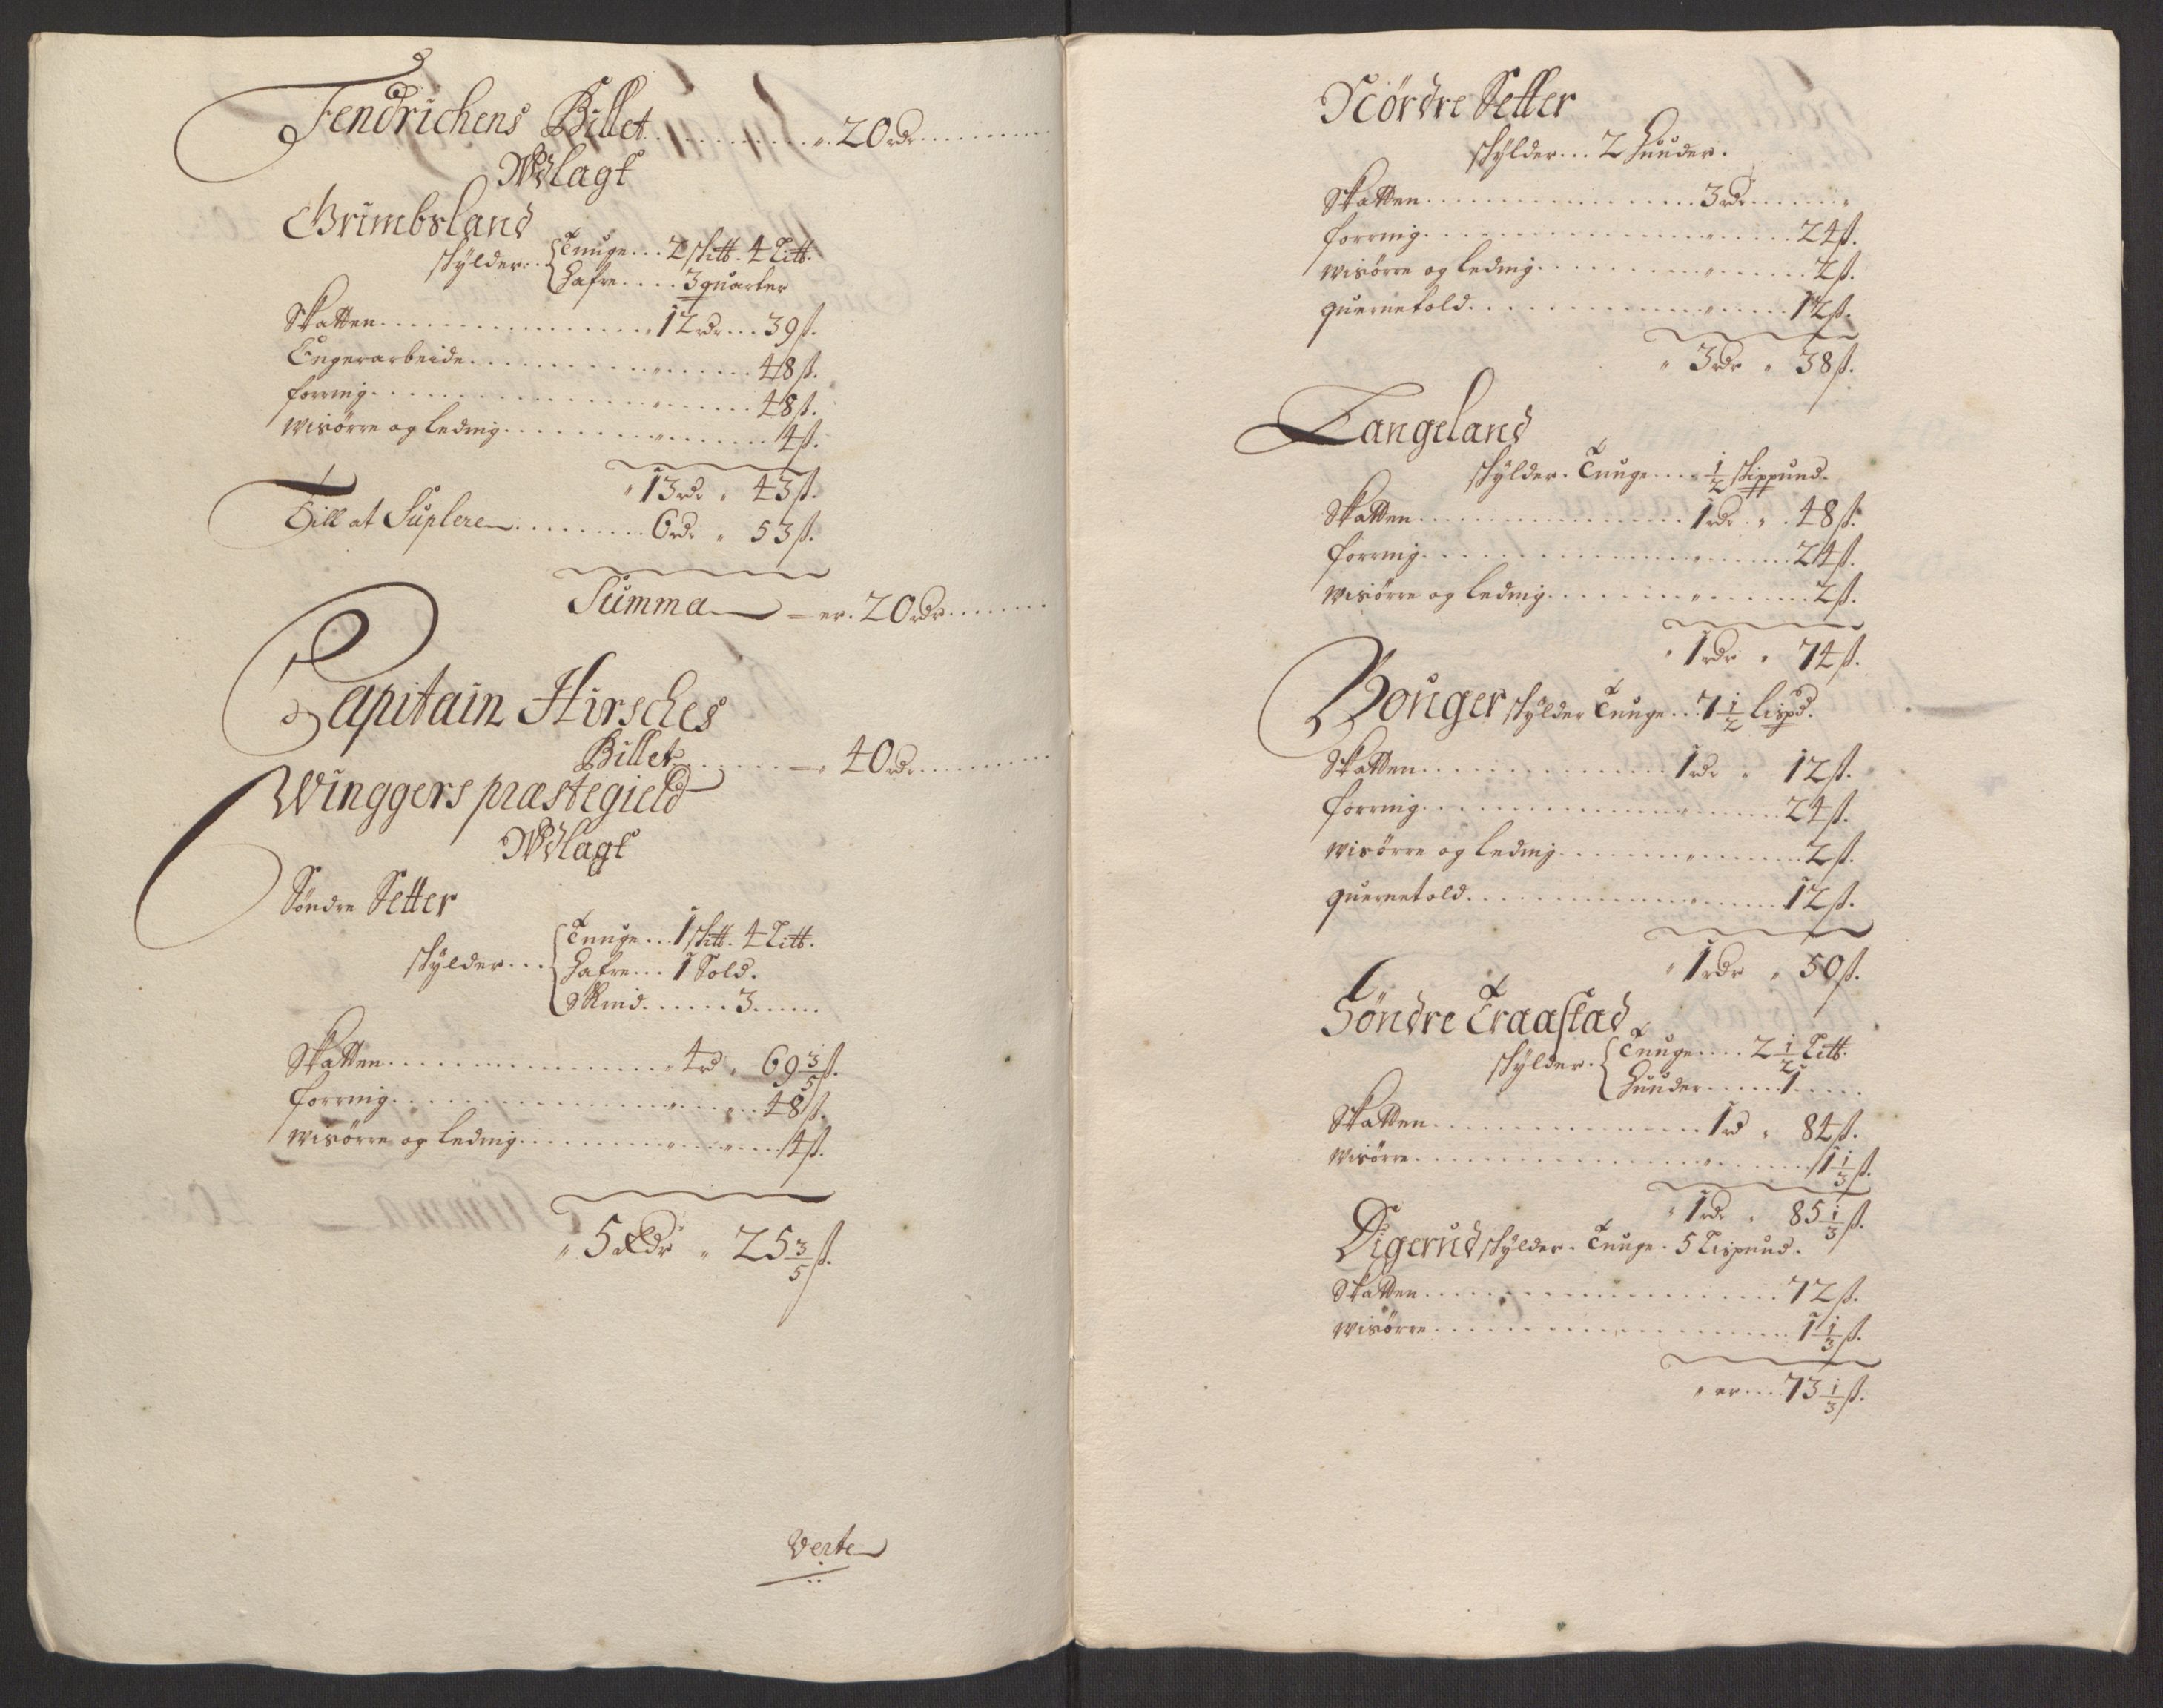 Fendrichens Billet . . . . . . . . . „ 20 rdr . . . . . .
Wdlagt
Grimbsland
skylder . . { Tunge . . . 2 skitt. 4 Litt.
Hafre . . . . 3 quarter
Skatten . . . . . . . . . . . . „ 12 rdr . . . 39 ß.
Engerarbeide . . . . . . . . . „ . . . . . 48 ß.
foering . . . . . . . . . . . . „ . . . . . 48 ß.
wisörre og Leding . . . . . . . . „ . . . . . 4 ß.
„ 13 rdr „ 43 ß.
Till at Suplere . . . . . . . . 6 rdr „ 53 ß.
Summa — er . 20 rdr . . . . . .
Capitain Hirsches
Billet . . . . . . — „ 40 rdr . . . . . . .
Winggers præstegield
Wdlagt
Söndre Setter
skylder . . . { Tunge . . . 1 skitt. 4 Litt.
Hafre . . . 1 Sold.
Skind . . . . . . 3 . . . . .
Skatten . . . . . . . . . . . . „ 4 rd „ 69 3/5 ß.
foering . . . . . . . . . . . . „ . . „ . . 48 ß.
wisörre og Leding . . . . . . . . „ . . „ . . . 4 ß.
„ 5 Rdr „ 25 3/5 ß.
Verte
Nördre Setter
skylder . . . 2 Huuder.
Skatten . . . . . . . . . . . . . . 3 rdr . . . . . „
foering . . . . . . . . . . . . . . „ . . . . 24 ß.
wisörre og Leding . . . . . . . . . „ . . . . . 2 ß.
quernetold . . . . . . . . . . . . „ . . . . 12 ß.
„ 3 rdr „ 38 ß.
Langeland
skylder . Tunge . . . . 1/2 skippund.
Skatten . . . . . . . . . . . . . . 1 rdr . „ . 48 ß.
foering . . . . . . . . . . . . . . „ . . . . 24 ß.
wisörre og Leding . . . . . . . . „ . . . . . . 2 ß.
„ 1 rdr „ 74 ß.
Bouger skylder Tunge . . . 7 1/2 Lispd.
Skatten . . . . . . . . . . . . . 1 rdr „ 12 ß.
foering . . . . . . . . . . . . . „ . . . . 24 ß.
wisörre og Leding . . . . . . . „ . . . . . . 2 ß.
quernetold . . . . . . . . . . . „ . . . . 12 ß.
„ 1 rdr „ 50 ß.
Söndre Traastad
skylder . { Tunge . . . . 2 1/2 Litt.
Huuder . . . . . 1 . . . . .
Skatten . . . . . . . . . . . . . . 1 rd „ 84 ß.
wisörre . . . . . . . . . . . . . . „ . . . . . 1 1/3 ß.
„ 1 rdr „ 85 1/3 ß.
Digerud skylder . Tunge . 5 Lispund .
Skatten . . . . . . . . . . . . . . . . . 72 ß.
wisörre . . . . . . . . . . „ . . . . . . . . 1 1/3 ß.
„ er . . . . 73 1/3 ß.